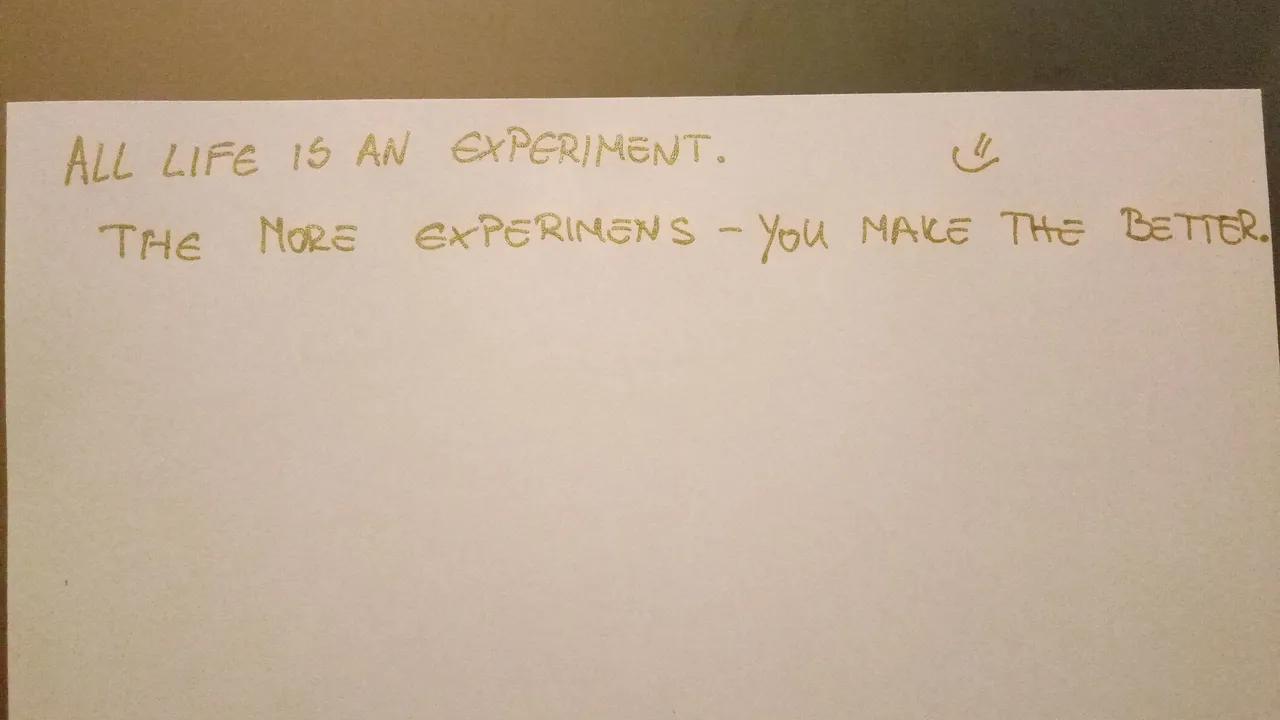 ALL LIFE IS AN EXPERIMENT.
THE MORE EXPERIMENS - YOU MAKE THE BETTER.